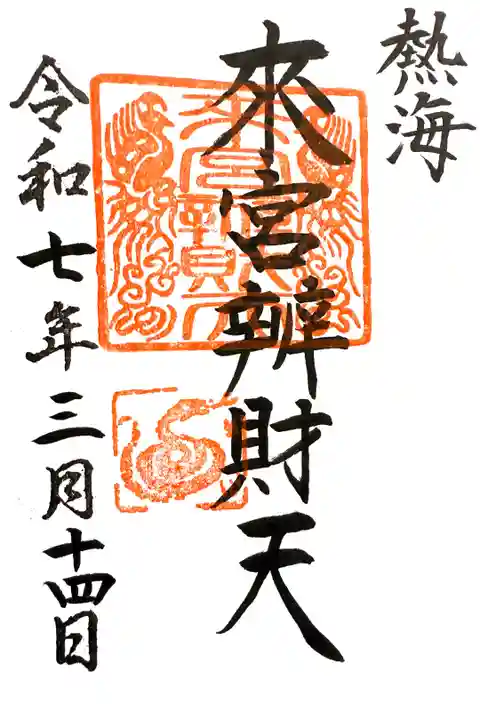 熱海
來宮辨財天
令和七年三月十四日